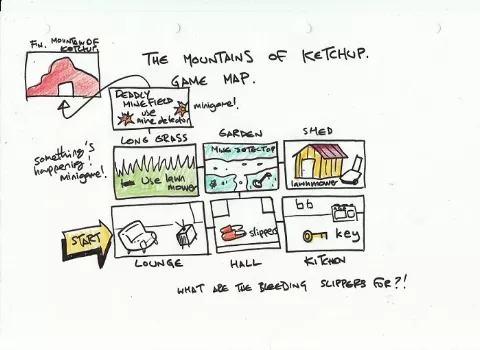 FIN. MOUNTAIN OF
KETCHUP.
THE MOUNTAINS OF KETCHUP.
GAME MAP.
DEADLY
MINEFIELD
use
mine detector
minigame!
LONG GRASS
GARDEN
SHED
something's
happening!
minigame!
Use lawn
mower
MINE DETECTOR
lawnmower
START
slippers
key
LOUNGE
HALL
KITCHEN
WHAT ARE THE BLEEDING SLIPPERS FOR?!